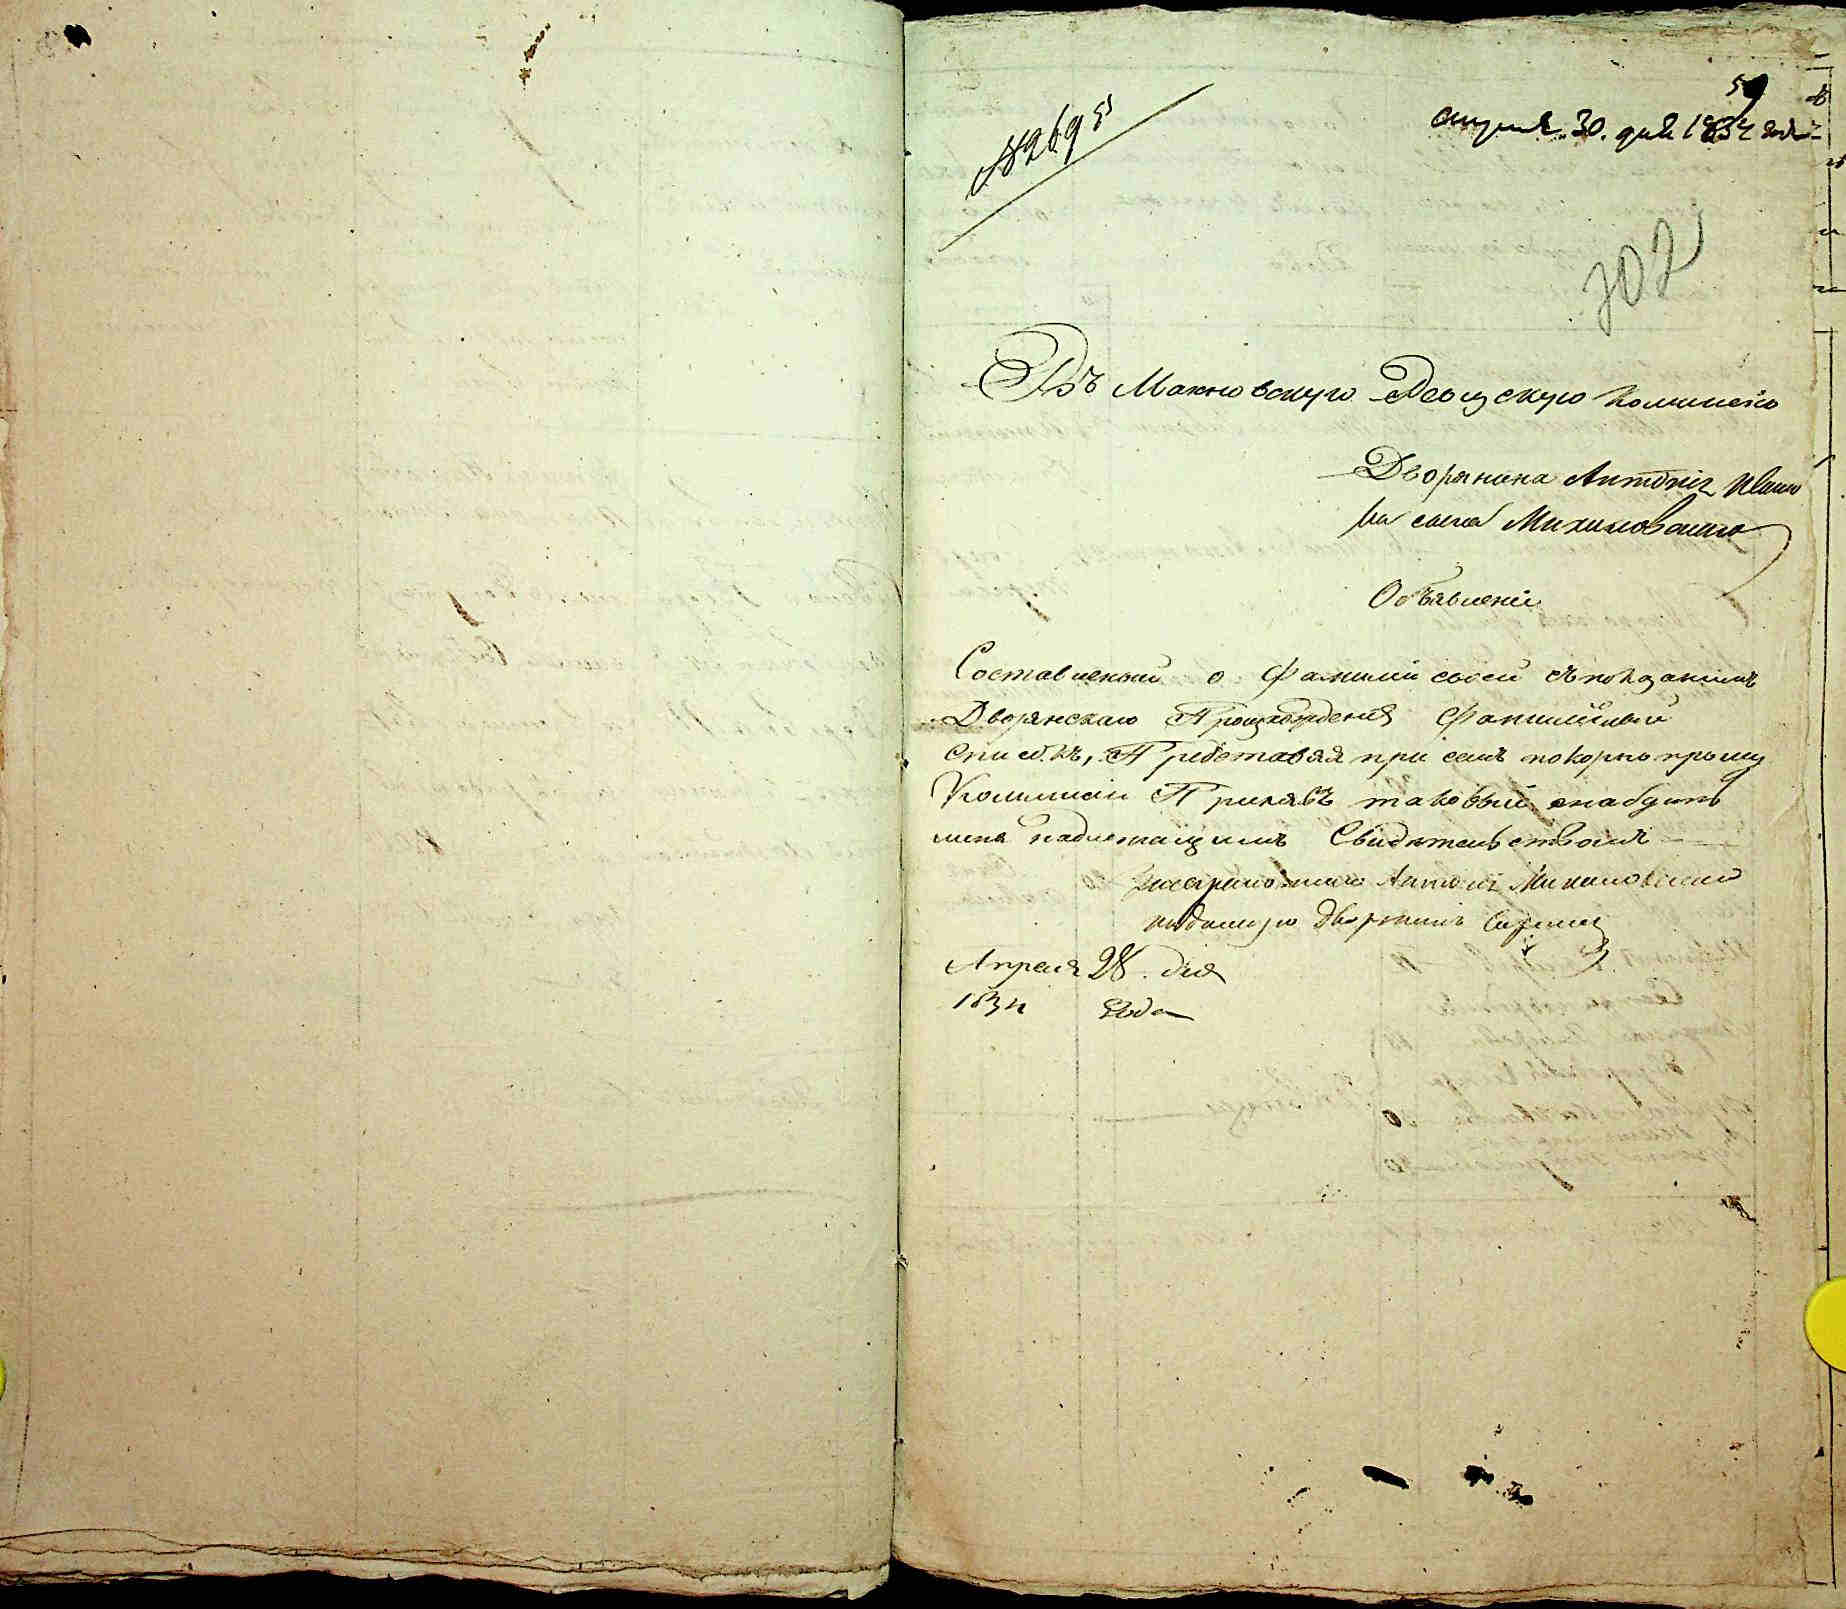 № 2695
59
апреля 30. дня 1834 года
302
Въ Махновскую Ревизскую Комисею
Дворянина Антонія Ивано
ва сына Михаловскаго
Объявленіе
Составленный о Фамиліи своей съ показаніемъ
Дворянскаго Произхожденія Фамилійный
списокъ, Представляя при семъ покорно прошу
Коммисіи Принявъ таковый снабдить
меня надлежащимъ Свидетельствомъ
Антоній Михаловскій
Дворянинъ
Апреля 28. дня
1834 Года